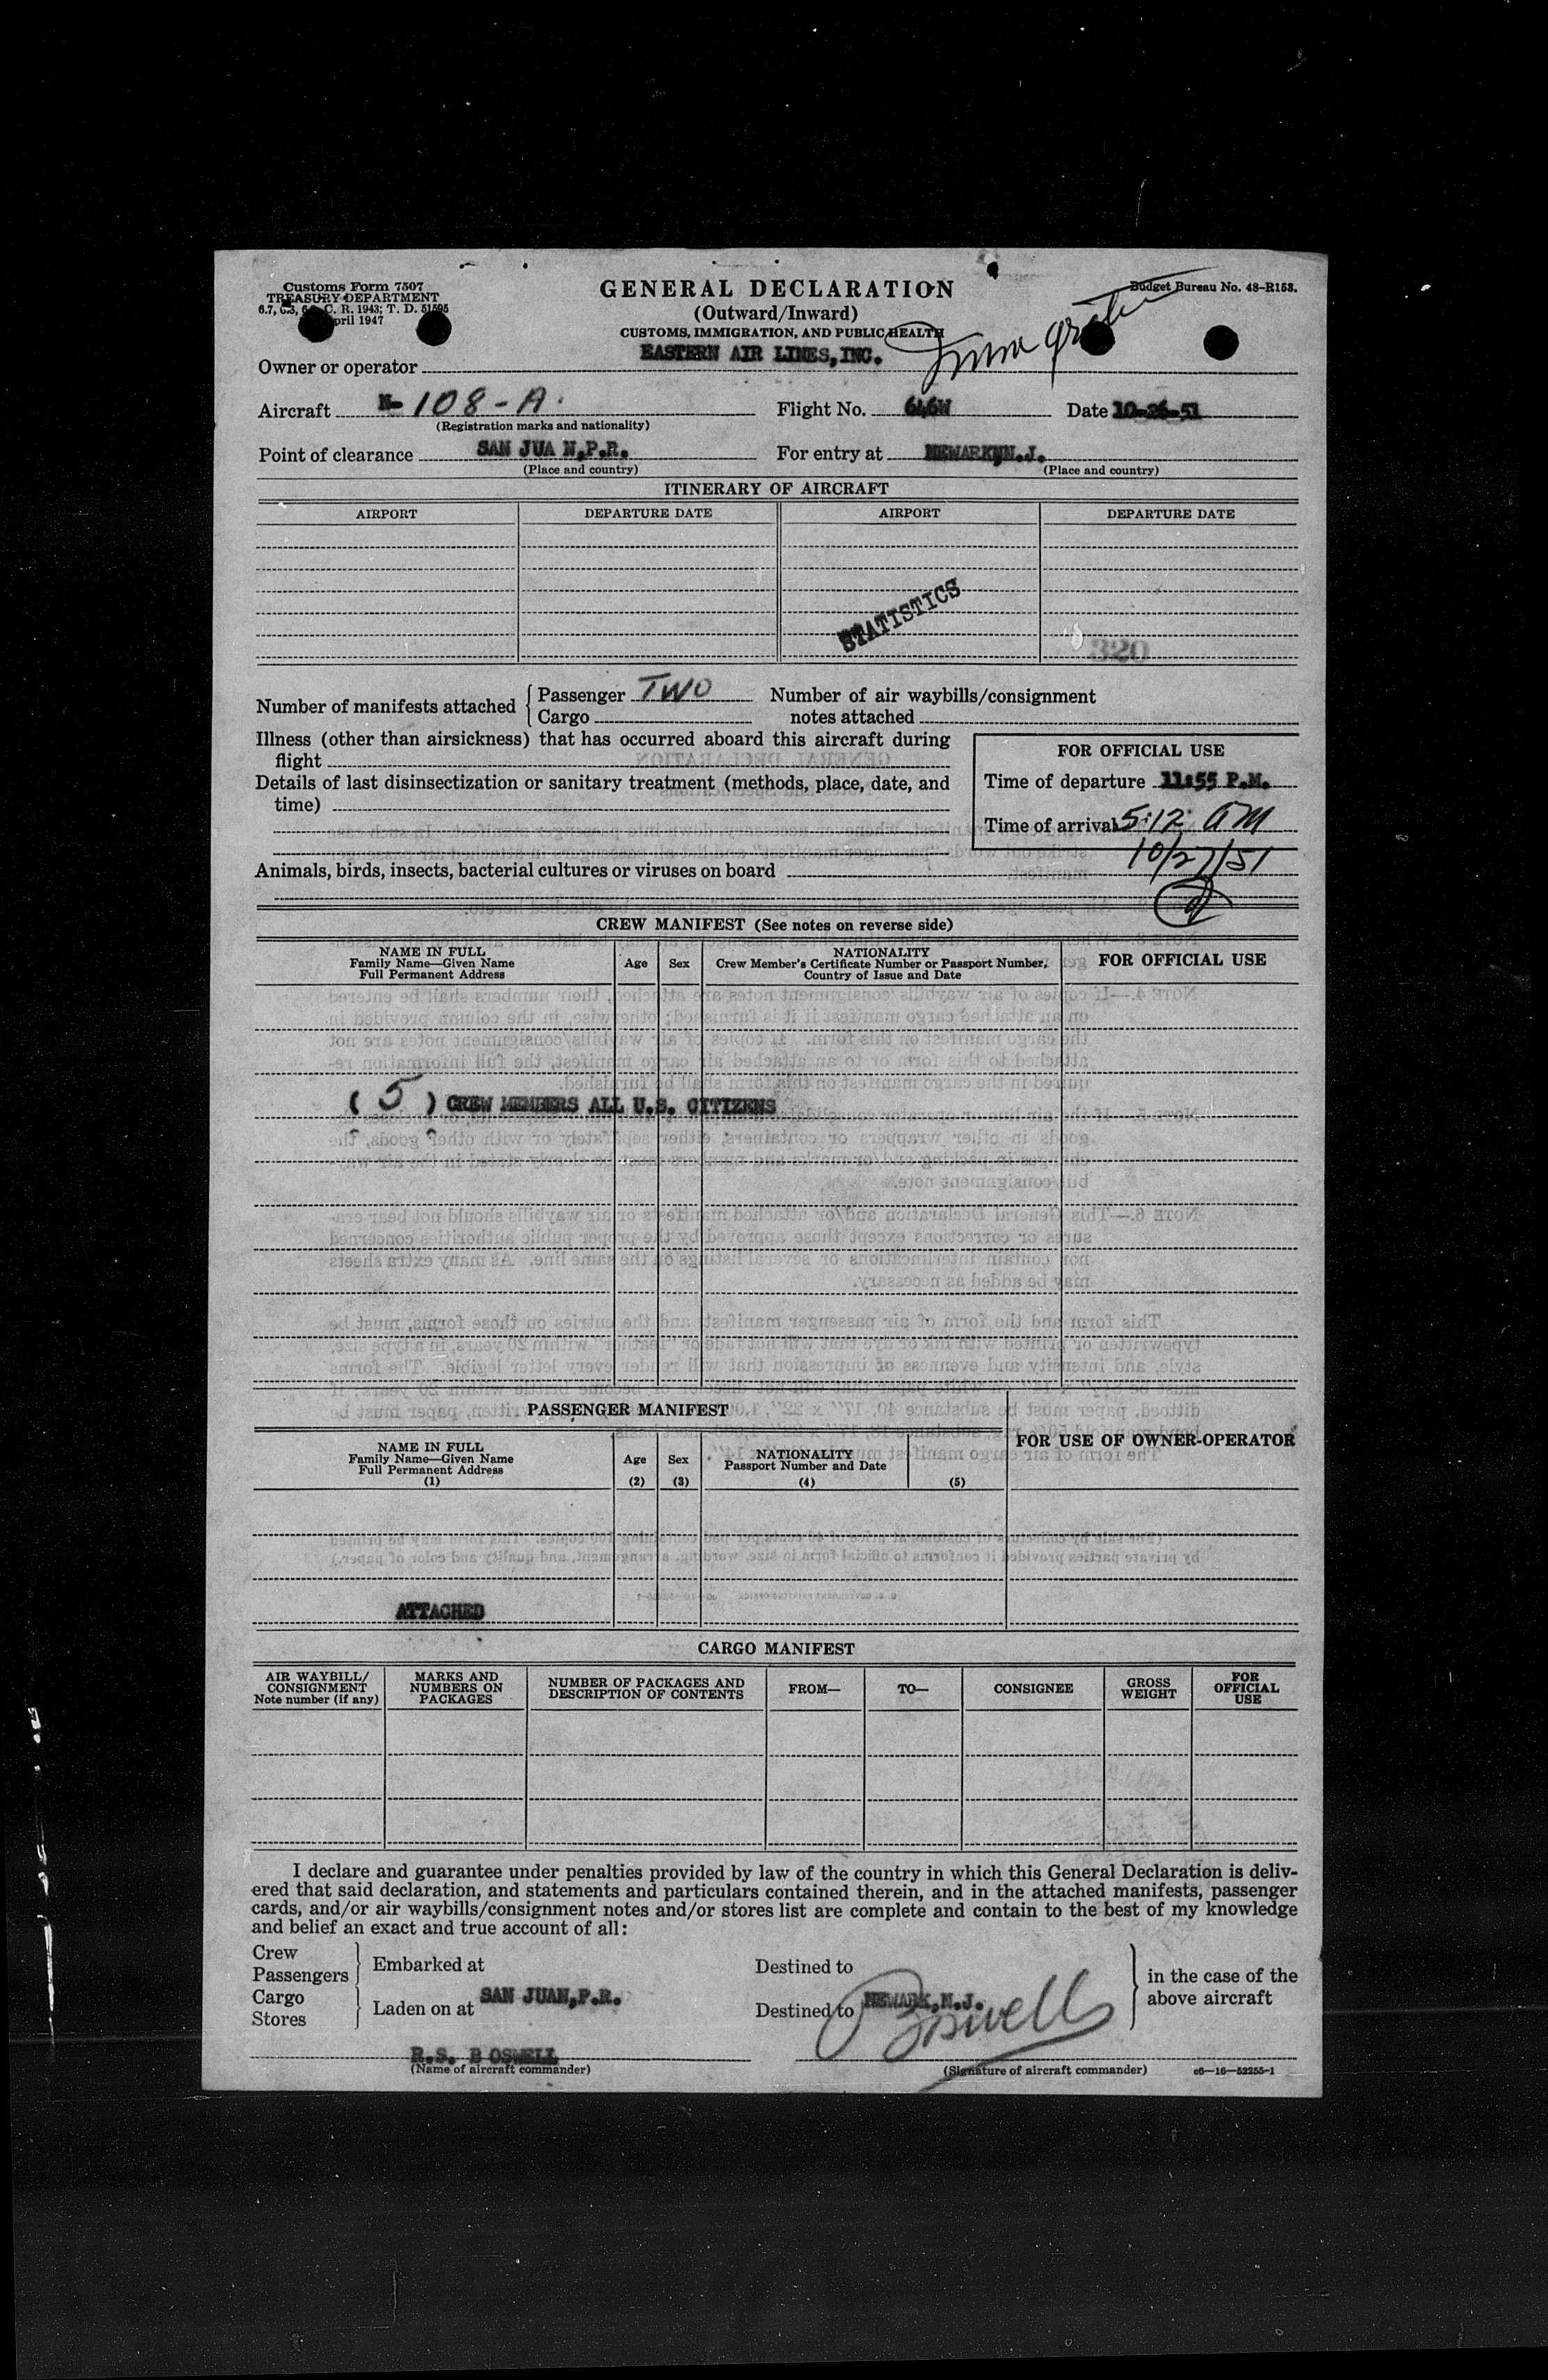 Customs Form 7507
TREASURY DEPARTMENT
6.7, 6.8, C. R. 1943; T. D. 51595
April 1947
GENERAL DECLARATION
(Outward/Inward)
CUSTOMS, IMMIGRATION, AND PUBLIC HEALTH
Budget Bureau No. 48-R158.
Immigration
Owner or operator EASTERN AIR LINES, INC.
Aircraft N- 108-A. Flight No. 646W Date 10-26-51
(Registration marks and nationality)
Point of clearance SAN JUA N,P.R. For entry at NEWARK,N.J.
(Place and country) (Place and country)
ITINERARY OF AIRCRAFT
AIRPORT DEPARTURE DATE AIRPORT DEPARTURE DATE
STATISTICS
320
Number of manifests attached Passenger TWO Number of air waybills/consignment
Cargo notes attached
Illness (other than airsickness) that has occurred aboard this aircraft during
flight
Details of last disinsectization or sanitary treatment (methods, place, date, and
time)
FOR OFFICIAL USE
Time of departure 11:55 P.M.
Time of arrival 5:12 AM
10/27/51
Animals, birds, insects, bacterial cultures or viruses on board
CREW MANIFEST (See notes on reverse side)
NAME IN FULL
Family Name—Given Name
Full Permanent Address
Age Sex
NATIONALITY
Crew Member's Certificate Number or Passport Number,
Country of Issue and Date
FOR OFFICIAL USE
( 5 ) CREW MEMBERS ALL U.S. CITIZENS
PASSENGER MANIFEST
NAME IN FULL
Family Name—Given Name
Full Permanent Address
(1)
Age
(2)
Sex
(3)
NATIONALITY
Passport Number and Date
(4) (5)
FOR USE OF OWNER-OPERATOR
ATTACHED
CARGO MANIFEST
AIR WAYBILL/
CONSIGNMENT
Note number (if any)
MARKS AND
NUMBERS ON
PACKAGES
NUMBER OF PACKAGES AND
DESCRIPTION OF CONTENTS
FROM— TO— CONSIGNEE
GROSS
WEIGHT
FOR
OFFICIAL
USE
I declare and guarantee under penalties provided by law of the country in which this General Declaration is deliv-
ered that said declaration, and statements and particulars contained therein, and in the attached manifests, passenger
cards, and/or air waybills/consignment notes and/or stores list are complete and contain to the best of my knowledge
and belief an exact and true account of all:
Crew
Passengers Embarked at Destined to in the case of the
Cargo above aircraft
Stores Laden on at SAN JUAN,P.R. Destined to NEWARK,N.J.
R.S. B OSWELL Boswell
(Name of aircraft commander) (Signature of aircraft commander) c6—16—52255-1